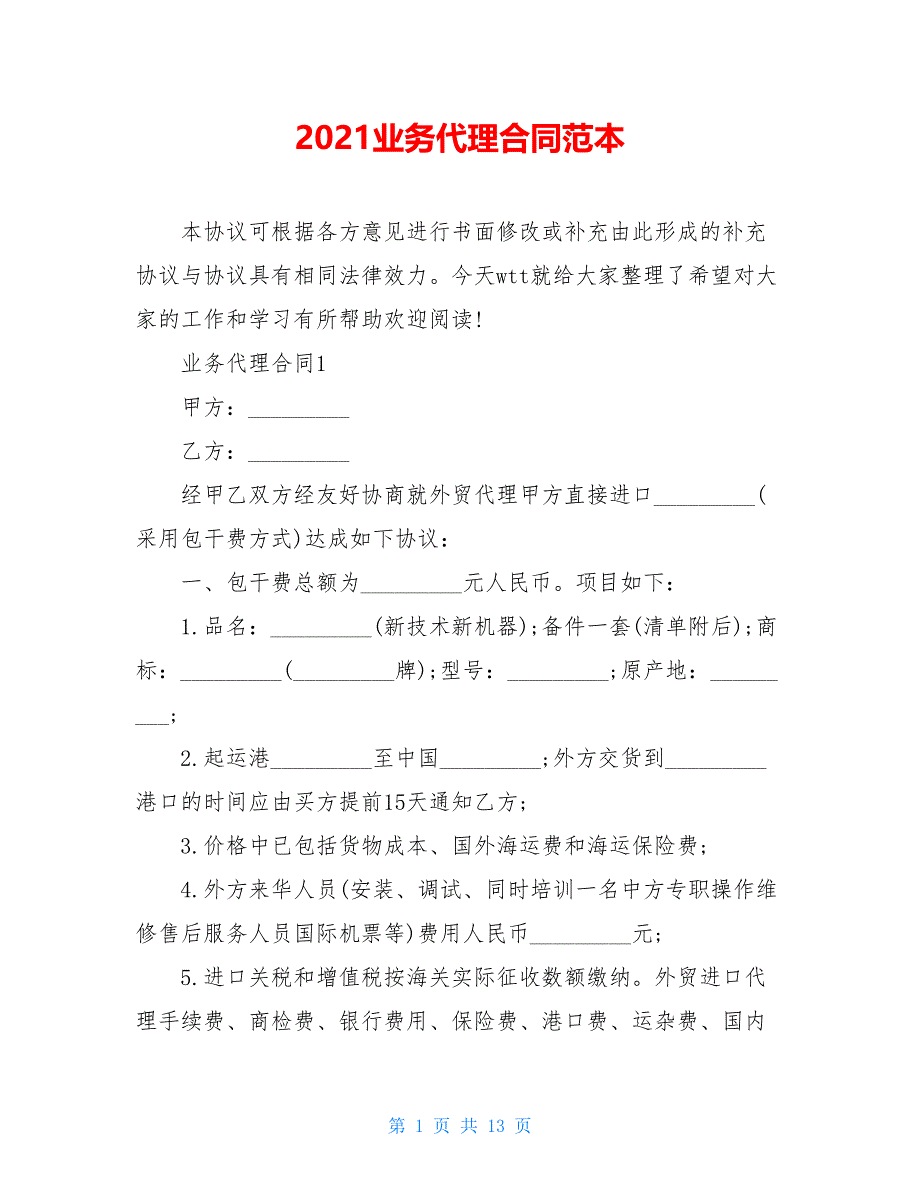 2021业务代理合同范本
本协议可根据各方意见进行书面修改或补充由此形成的补充
协议与协议具有相同法律效力。今天wtt就给大家整理了希望对大
家的工作和学习有所帮助欢迎阅读!
业务代理合同1
甲方：_________
乙方：_________
经甲乙双方经友好协商就外贸代理甲方直接进口_________(
采用包干费方式)达成如下协议：
一、包干费总额为_________元人民币。项目如下：
1.品名：_________(新技术新机器);备件一套(清单附后);商
标：_________(_________牌);型号：_________;原产地：______
___;
2.起运港_________至中国_________;外方交货到_________
港口的时间应由买方提前15天通知乙方;
3.价格中已包括货物成本、国外海运费和海运保险费;
4.外方来华人员(安装、调试、同时培训一名中方专职操作维
修售后服务人员国际机票等)费用人民币_________元;
5.进口关税和增值税按海关实际征收数额缴纳。外贸进口代
理手续费、商检费、银行费用、保险费、港口费、运杂费、国内
第 1 页 共 13 页